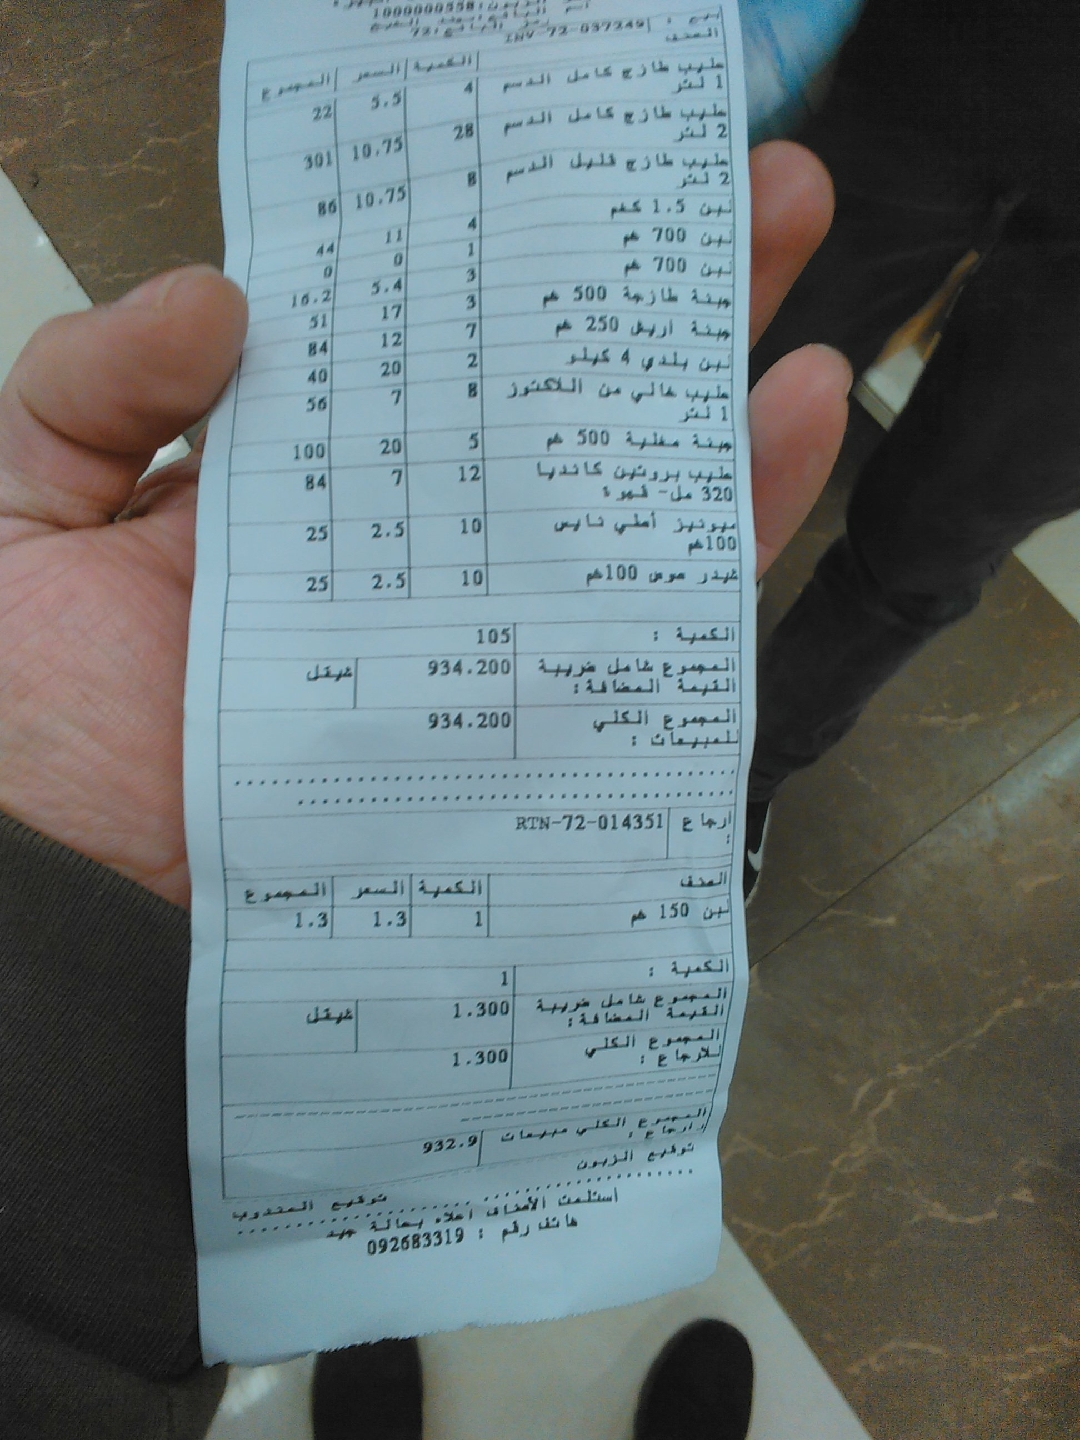 1000000558
اسم البائع: 72
بيع : INV-72-037249
الصنف الكمية السعر المجموع
حليب طازج كامل الدسم 4 5.5 22
1 لتر
حليب طازج كامل الدسم 28 10.75 301
2 لتر
حليب طازج قليل الدسم 8 10.75 86
2 لتر
لبن 1.5 كغم 4 11 44
لبن 700 غم 1 0 0
لبن 700 غم 3 5.4 16.2
جبنة طازجة 500 غم 3 17 51
جبنة اريش 250 غم 7 12 84
لبن بلدي 4 كيلو 2 20 40
حليب خالي من اللاكتوز 8 7 56
1 لتر
جبنة مغلية 500 غم 5 20 100
حليب بروتين كانديا 12 7 84
320 مل- قهوة
ميونيز أصلي نايس 10 2.5 25
100غم
شيدر صوص 100غم 10 2.5 25
الكمية : 105
المجموع شامل ضريبة 934.200 شيقل
القيمة المضافة:
المجموع الكلي 934.200
للمبيعات :
ارجاع RTN-72-014351
:
الصنف الكمية السعر المجموع
لبن 150 غم 1 1.3 1.3
الكمية : 1
المجموع شامل ضريبة 1.300 شيقل
القيمة المضافة:
المجموع الكلي 1.300
للارجاع :
المجموع الكلي مبيعات 932.9
وارجاع :
توقيع الزبون توقيع المندوب
استلمت الأصناف اعلاه بحالة جيد
هاتف رقم : 092683319